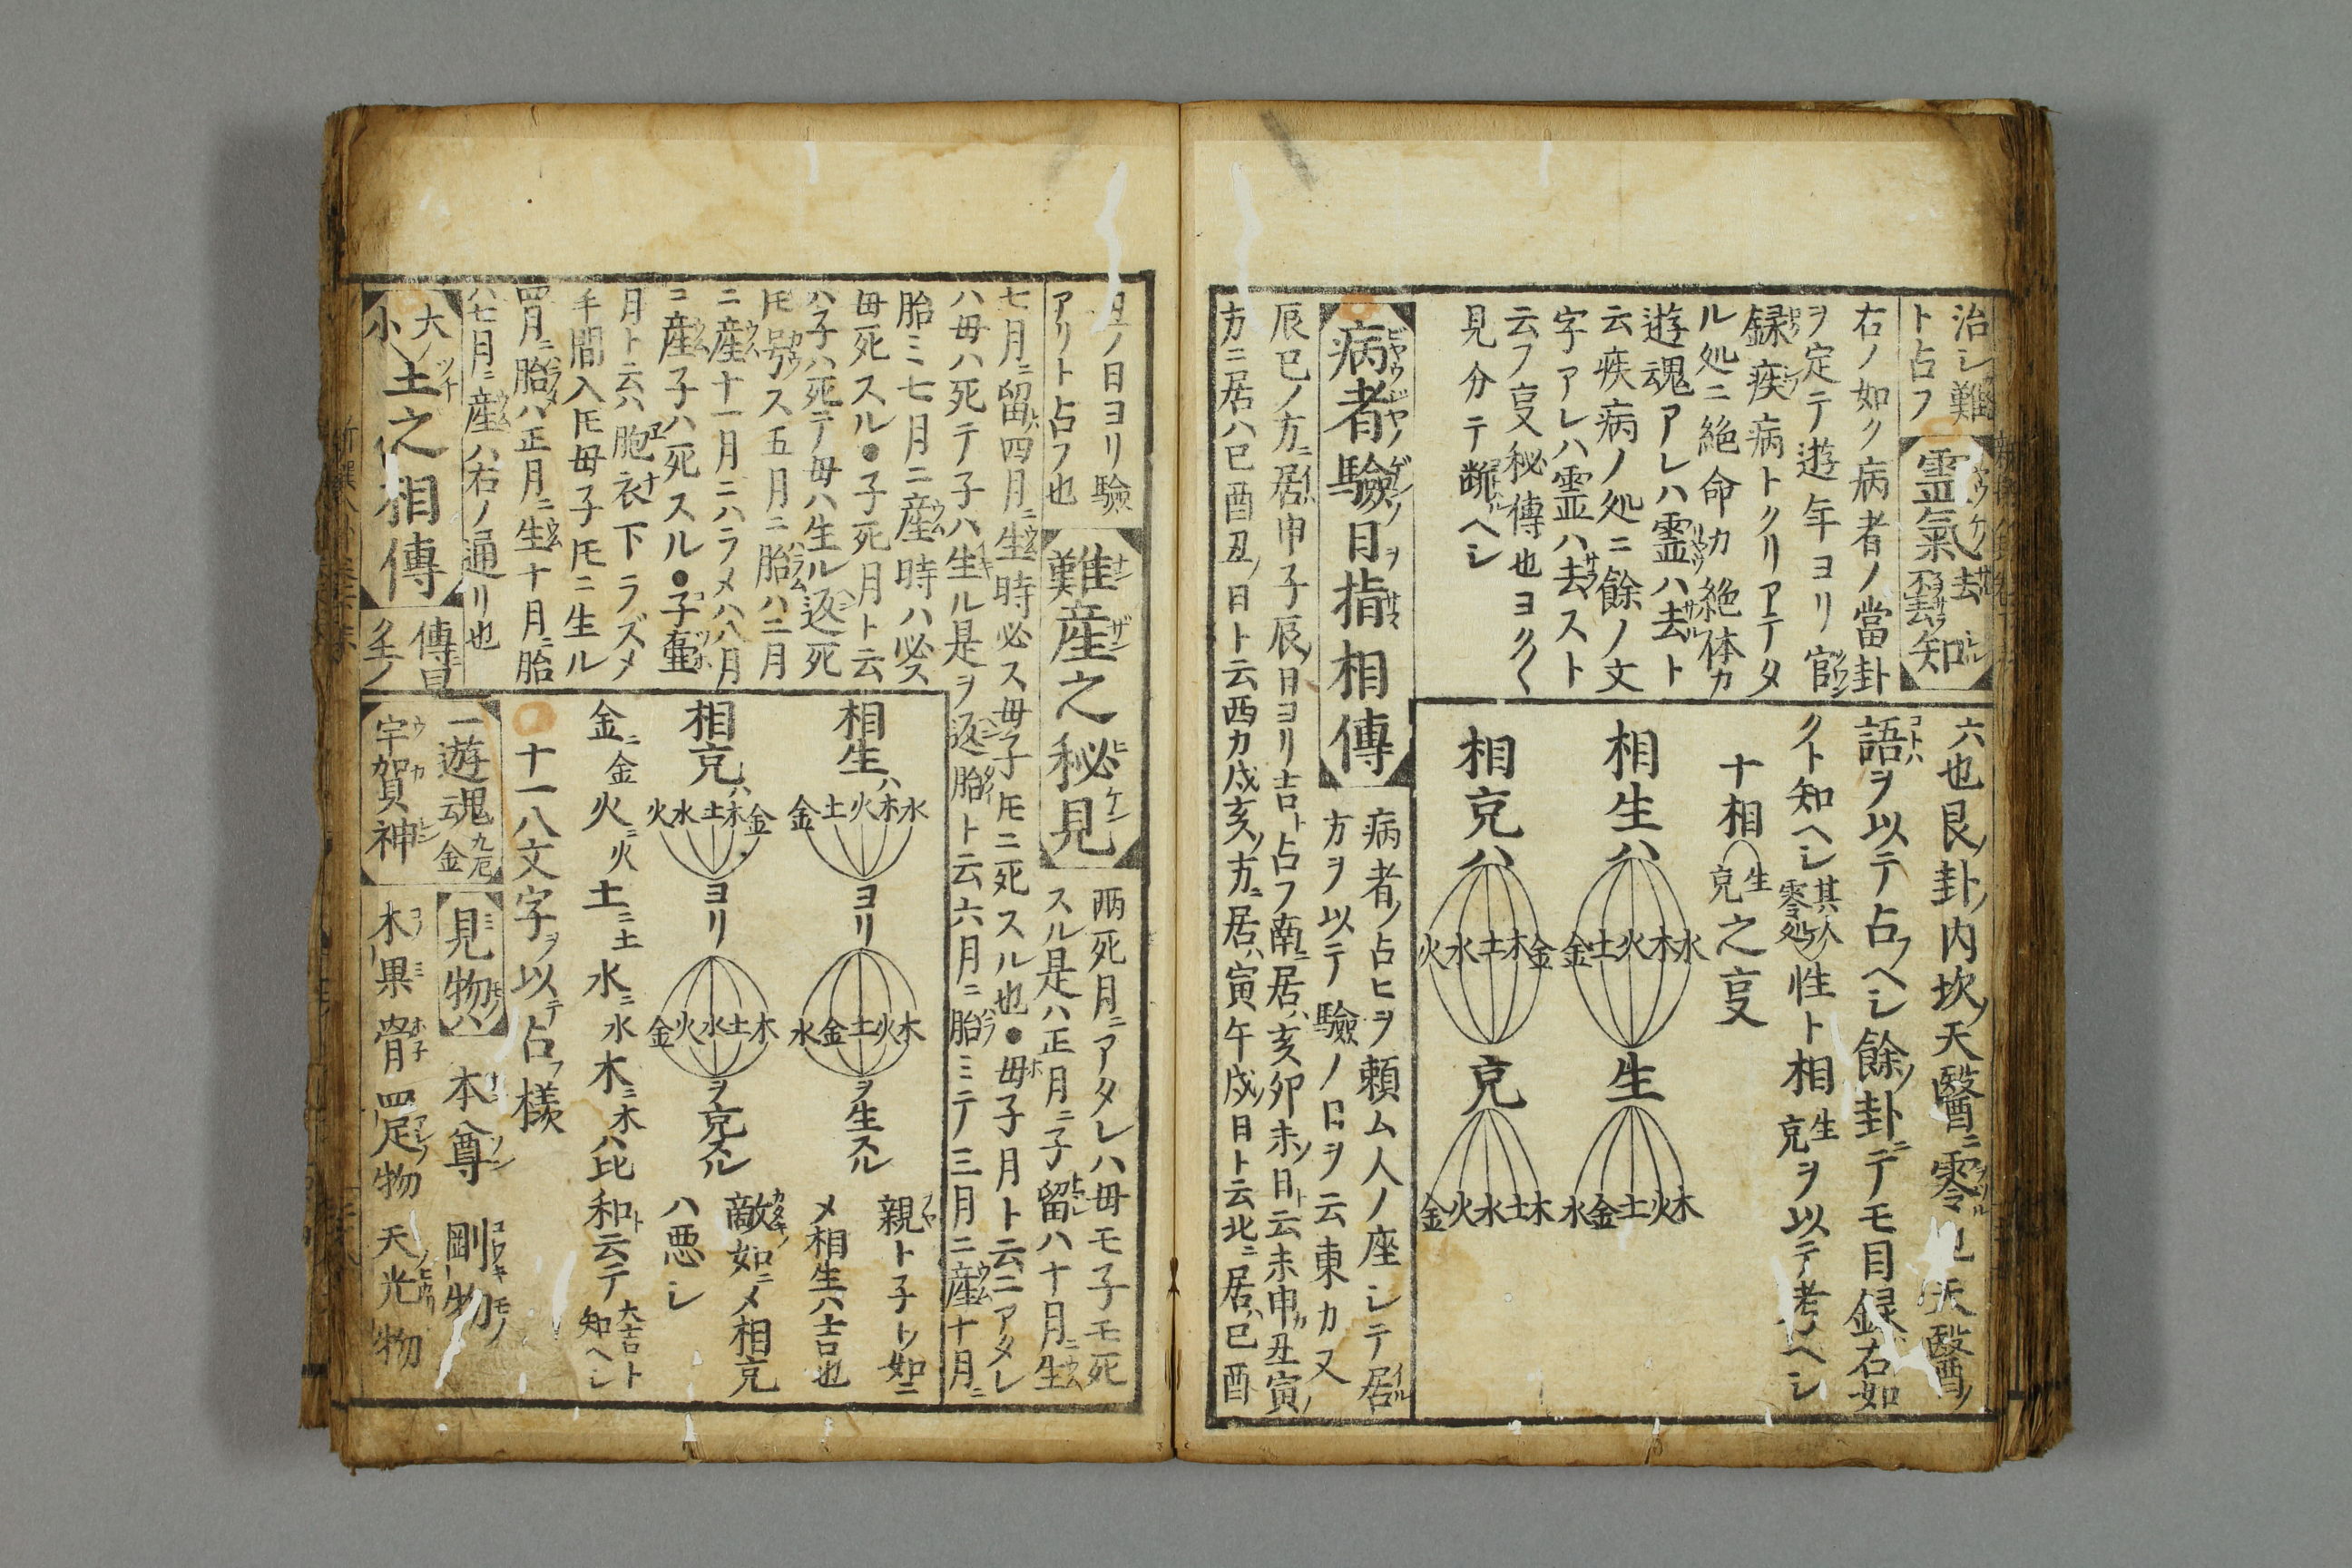 治シ難
ト占フ
霊氣去不去ヲ知
右ノ如ク病者ノ當卦
ヲ定テ遊年ヨリ官
録疾病トクリアテタ
ル処ニ絶命カ絶体カ
遊魂アレハ霊ハ去ト
云疾病ノ処ニ餘ノ文
字アレハ霊ハ去スト
云フ㕝秘傳也ヨク〱
見分テ断ヘシ
六也艮ノ卦ノ内坎ノ天醫ニ零也天醫ノ
語ヲ以テ占フヘシ餘ノ卦ニテモ目録右如
クト知ヘシ其人零処ノ性ト相生克ヲ以テ考ヘシ
十相生克之㕝
相生ハ
水木火土金
生
木火土金水
相克ハ
金木土水火
克
木土水火金
病者驗日指相傳
病者ノ占ヒヲ頼ム人ノ座シテ居
方ヲ以テ驗ノ日ヲ云東カ又
辰巳ノ方ニ居ハ申子辰ノ日ヨリ吉ト占フ南ニ居ハ亥卯未ノ日ト云未申カ丑寅ノ
方ニ居ハ巳酉丑ノ日ト云西カ戌亥ノ方ニ居ハ寅午戌ノ日ト云北ニ居ハ巳酉
丑ノ日ヨリ驗
アリト占フ也
難産之秘見
兩死月ニアタレハ母モ子モ死
スル是ハ正月ニ子留ハ十月ニ生
七月ニ留ハ四月ニ生時必ス母子𪜈ニ死スル也●母子月ト云ニアタレ
ハ母ハ死テ子ハ生ル是ヲ返胎ト云六月ニ胎ミテ三月ニ産十月ニ
胎ミ七月ニ産時ハ必ス
母死スル●子死月ト云
ハ子ハ死テ母ハ生ル返死
𪜈号ス五月ニ胎ハ二月
ニ産十一月ニハラメハ八月
ニ産子ハ死スル●子
月ト云ハ胞衣下ラズメ
手間入𪜈母子𪜈ニ生ル
四月ニ胎ハ正月ニ生十月ニ胎
ハ七月ニ産ハ右ノ通リ也
相生ハ
水木火土金
ヨリ
木火土金水
ヲ生スル
親ト子ト如ニ
メ相生ハ吉也
相克ハ
金木土水火
ヨリ
木土水火金
ヲ克スル
敵如ニメ相克
ハ悪シ
金ニ金火ニ火土ニ土水ニ水木ニ木ハ比和ト云テ大吉ト知ヘシ
十一八文字ヲ以テ占フ様
大小ノ土之相傳
傳曰
一遊魂九厄云金
宇賀神
見物ハ
本尊 剛物
木ノ果 骨 四足物 天光物